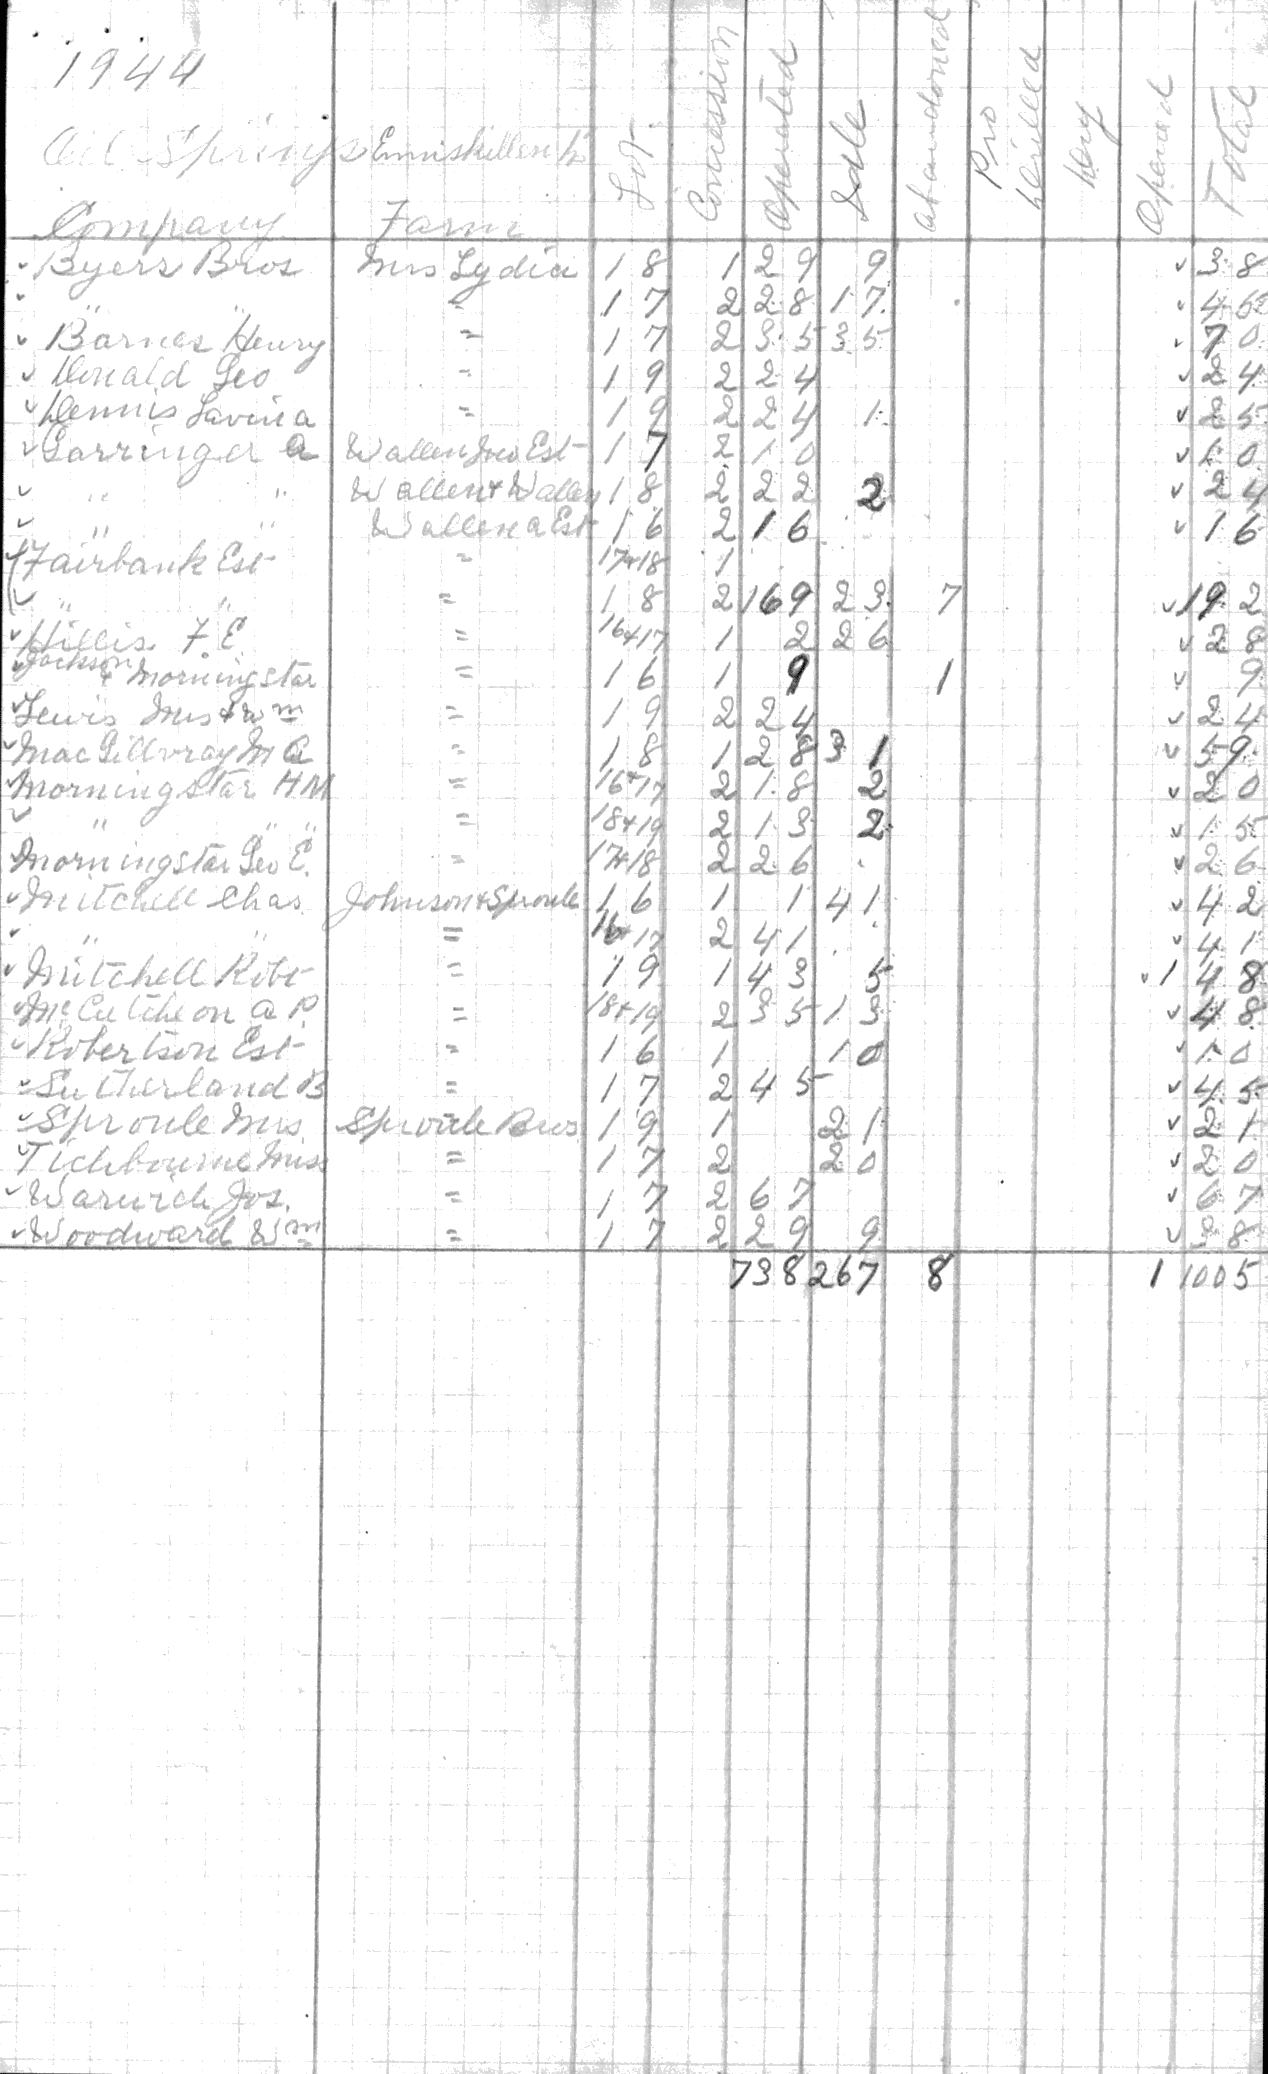 1944
Oil Springs Enniskillen
Company Farm Lot Concession Operated Idle Abandoned Pro Drilled Dry Opened Total
Byers Bros Mrs Lydia 18 1 29 9 38
" " " 17 2 28 17 45
Barnes Henry " 17 2 35 35 70
Donald Geo " 19 2 24 24
Dennis Lavina " 19 2 24 1 25
Garringer A Wallen Est 17 2 10 10
" " Wallen + Wallen 18 2 22 2 24
" " Wallen A Est 16 2 16 16
Fairbank Est " 17+18 1
" " " 18 2 169 23 7 192
Hillis F. E. " 16+17 1 2 26 28
Jackson + Morningstar " 16 1 9 1 9
Lewis Mrs + Wm " 19 2 24 24
MacGillvray M A " 18 1 28 31 59
Morningstar H M " 16+17 2 18 2 20
" " " 18+19 2 13 2 15
Morningstar Geo E. " 17+18 2 26 26
Mitchell Chas. Johnson + Sproule 16 1 1 41 42
" " " 16+17 2 41 41
Mitchell Robt " 19 1 43 5 1 48
McCutcheon A P. " 18+19 2 35 13 48
Robertson Est " 16 1 10 10
Sutherland B " 17 2 45 45
Sproule Mrs. Sproule Bros 19 1 21 21
Tichbourne Miss " 17 2 20 20
Warwick Jos. " 17 2 67 67
Woodward Wm " 17 2 29 9 38
738 267 8 1 1005